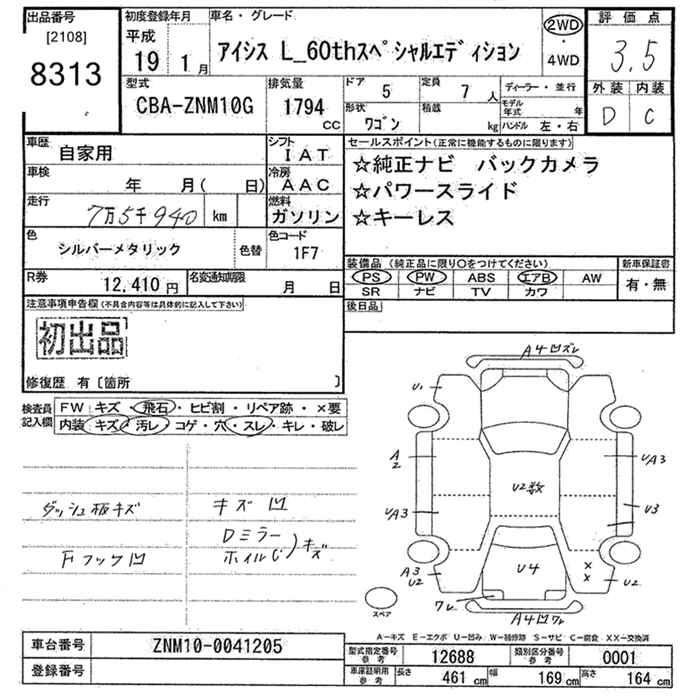 出品番号
[2108]
8313
初度登録年月
平成
19 1月
車名・グレード
アイシス L_60thスペシャルエディション
2WD
・
4WD
評価点
3.5
外装 内装
D C
型式
CBA-ZNM10G
排気量
1794
CC
ドア
5
定員
7人
形状
ワゴン
積載
kg
ディーラー・並行
モデル年式 年
ハンドル 左・右
車歴
自家用
シフト
IAT
車検
年 月( 日)
冷房
AAC
走行
7万5千940 km
燃料
ガソリン
色
シルバーメタリック
色替
色コード
1F7
R券
12,410円
名変通知期限
月 日
セールスポイント(正常に機能するものに限ります)
☆純正ナビ バックカメラ
☆パワースライド
☆キーレス
装備品(純正品に限り〇をつけてください)
PS PW ABS エアB AW
SR ナビ TV カワ
新車保証書
有・無
後日品
注意事項申告欄(不具合内容等は具体的に記入して下さい)
初出品
修復歴 有〔箇所 〕
検査員
記入欄
FW キズ・飛石・ヒビ割・リペア跡・×要
内装 キズ・汚レ・コゲ・穴・スレ・キレ・破レ
ダッシュ板キズ
Fフック凹
キズ 凹
Dミラー
ホイルC )キズ
A4凹ズレ
U1
A2
UA3
UA3
U3
U2数
U4
A3
U2
××
U2
ワレ
A4凹ワレ
スペア
A-キズ E-エクボ U-凹み W-補修跡 S-サビ C-腐食 XX-交換済
車台番号
ZNM10-0041205
登録番号
型式指定番号
参考
12688
類別区分番号
参考
0001
車庫証明用
参考
長さ
461 cm
幅
169 cm
高さ
164 cm